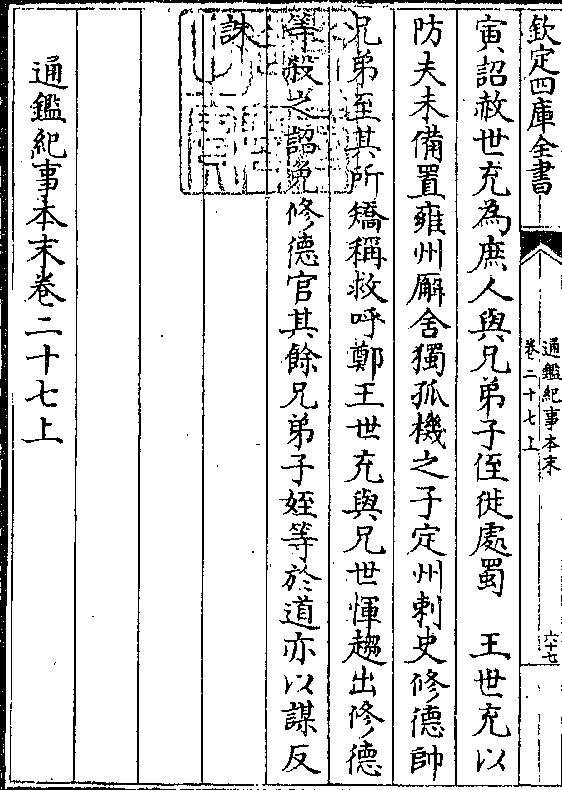 欽定四庫全書
通鑑紀事本末
卷二十七上
六十七
寅詔赦世充為庶人與兄弟子侄徙處蜀　王世充以
防夫未備置雍州廨舍獨孤機之子定州刺史修德帥
兄弟至其所矯稱敕呼鄭王世充與兄世惲趨出修德
等殺之詔免修德官其餘兄弟子姪等於道亦以謀反
誅
通鑑紀事本末卷二十七上